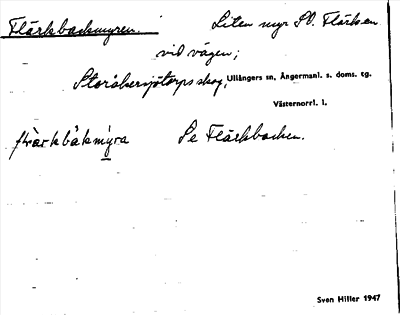 Flärkbackmyren. Liten myr SV. Flärken
vid vägen;
Storåbersjötorps skog, Ullångers sn, Ångermanl. s. doms. tg.
Västernorrl. l.
Se Flärkbacken.
Sven Hiller 1947